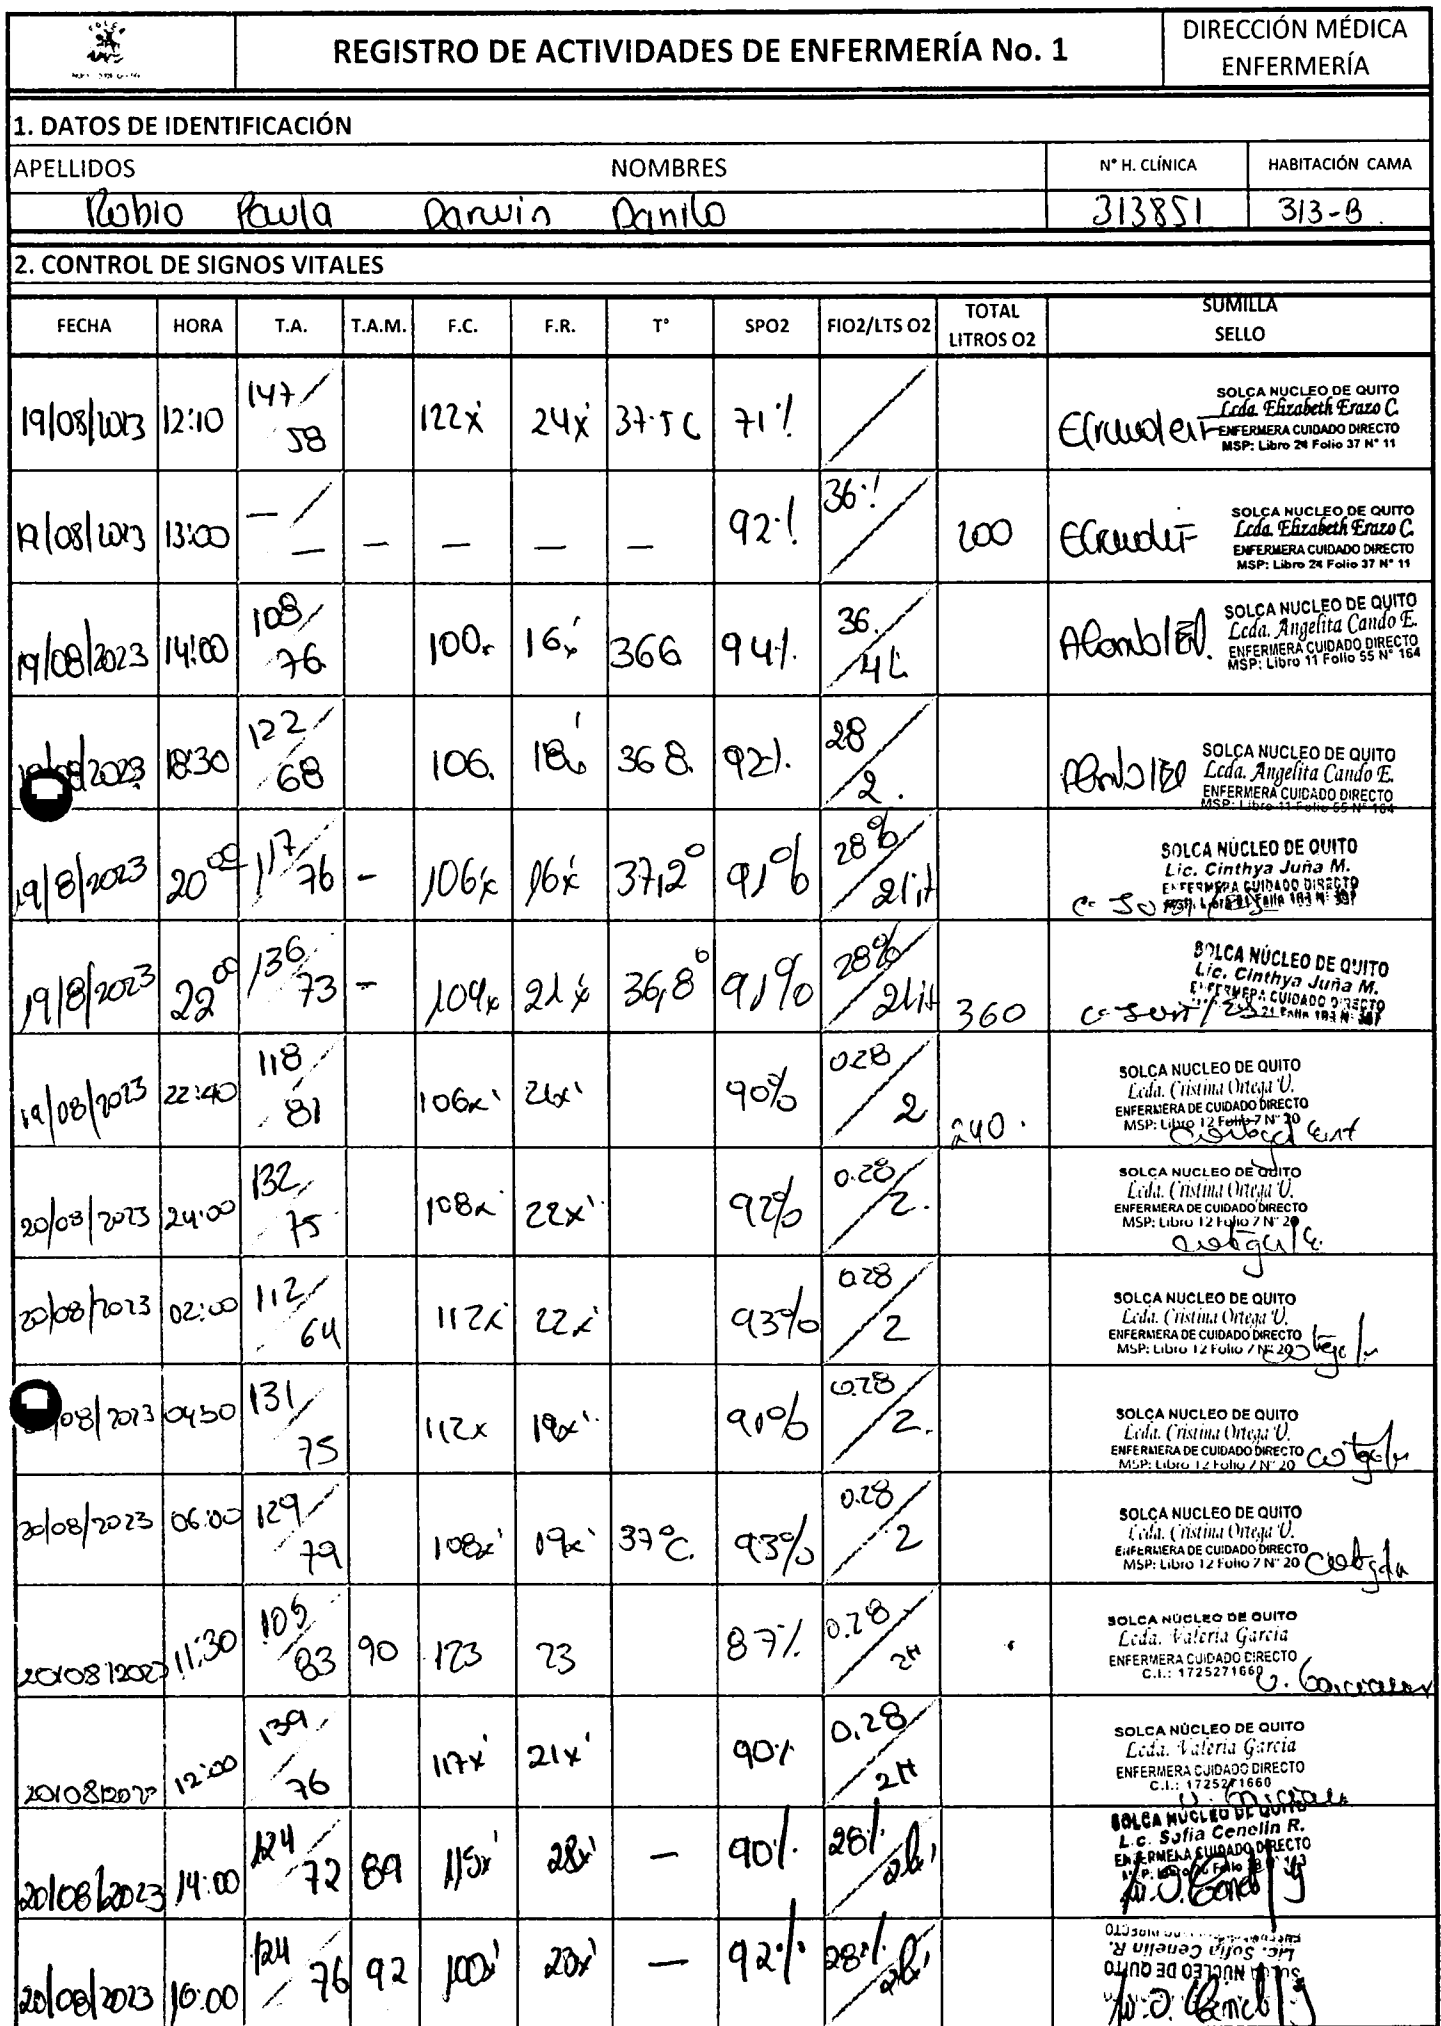 REGISTRO DE ACTIVIDADES DE ENFERMERÍA No. 1
DIRECCIÓN MÉDICA
ENFERMERÍA
1. DATOS DE IDENTIFICACIÓN
APELLIDOS NOMBRES N° H. CLÍNICA HABITACIÓN CAMA
Rubio Paula Darwin Danilo 313851 313-B.
2. CONTROL DE SIGNOS VITALES
FECHA HORA T.A. T.A.M. F.C. F.R. T° SPO2 FIO2/LTS O2 TOTAL LITROS O2 SUMILLA SELLO
19/08/2023 12:10 147/58 122x' 24x' 37.5C 71%
SOLCA NUCLEO DE QUITO
Lcda. Elizabeth Erazo C.
ENFERMERA CUIDADO DIRECTO
MSP: Libro 24 Folio 37 N° 11
19/08/2023 13:00 —/— — — — — 92% 36% 200
SOLCA NUCLEO DE QUITO
Lcda. Elizabeth Erazo C.
ENFERMERA CUIDADO DIRECTO
MSP: Libro 24 Folio 37 N° 11
19/08/2023 14:00 108/76 100x 16x' 366 94%. 36./4L
SOLCA NUCLEO DE QUITO
Lcda. Angelita Cando E.
ENFERMERA CUIDADO DIRECTO
MSP: Libro 11 Folio 55 N° 164
/08/2023 18:30 122/68 106. 18x' 368. 92%. 28/2.
SOLCA NUCLEO DE QUITO
Lcda. Angelita Cando E.
ENFERMERA CUIDADO DIRECTO
MSP: Libro 11 Folio 55 N° 164
19/8/2023 20:00 117/76 - 106x' 16x' 37,2° 91% 28%/2lit
SOLCA NÚCLEO DE QUITO
Lic. Cinthya Juña M.
ENFERMERA CUIDADO DIRECTO
19/8/2023 22:00 136/73 - 104x 21x' 36,8° 91% 28%/2lit 360
SOLCA NÚCLEO DE QUITO
Lic. Cinthya Juña M.
ENFERMERA CUIDADO DIRECTO
19/08/2023 22:40 118/81 106x' 21x' 90% 0.28/2 240.
SOLCA NUCLEO DE QUITO
Lcda. Cristina Ortega U.
ENFERMERA DE CUIDADO DIRECTO
MSP: Libro 12 Folio 7 N° 20
20/08/2023 24:00 132/75 108x' 22x' 92% 0.28/2.
SOLCA NUCLEO DE QUITO
Lcda. Cristina Ortega U.
ENFERMERA DE CUIDADO DIRECTO
MSP: Libro 12 Folio 7 N° 20
20/08/2023 02:00 112/64 112x' 22x' 93% 0.28/2
SOLCA NUCLEO DE QUITO
Lcda. Cristina Ortega U.
ENFERMERA DE CUIDADO DIRECTO
MSP: Libro 12 Folio 7 N° 20
/08/2023 131/75 112x 19x' 91% 0.28/2.
SOLCA NUCLEO DE QUITO
Lcda. Cristina Ortega U.
ENFERMERA DE CUIDADO DIRECTO
MSP: Libro 12 Folio 7 N° 20
20/08/2023 06:00 129/79 108x' 19x' 37°C. 93% 0.28/2
SOLCA NUCLEO DE QUITO
Lcda. Cristina Ortega U.
ENFERMERA DE CUIDADO DIRECTO
MSP: Libro 12 Folio 7 N° 20
20/08/2023 11:30 105/83 90 123 23 87% 0.28/2lt
SOLCA NÚCLEO DE QUITO
Lcda. Valeria García
ENFERMERA CUIDADO DIRECTO
C.I.: 1725271660
12:00 139/76 117x' 21x' 90% 0.28/2lt
SOLCA NÚCLEO DE QUITO
Lcda. Valeria García
ENFERMERA CUIDADO DIRECTO
C.I.: 1725271660
20/08/2023 14:00 124/72 89 115x' 28x' — 90%. 28%/2lt
SOLCA NUCLEO DE QUITO
Lic. Sofia Cenelin R.
ENFERMERA CUIDADO DIRECTO
20/08/2023 16:00 124/76 92 100x' 20x' — 92% 28%/2lt
SOLCA NÚCLEO DE QUITO
Lic. Sofia Cenelin R.